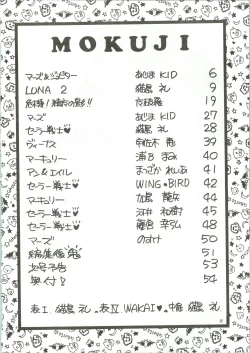 MOKUJI
マーズ&ジュピター あじま KID 6
LUNA 2 猫鳥 礼 9
19
マーズ あじま KID 27
セーラー戦士♥ 猫鳥 礼 28
ヴィーナス 宇佐木 39
マーキュリー 浦B まみ 40
アン&エイル まつざか れいあ 41
セーラー戦士♥ WING★BIRD 42
マキュリー 44
セーラー戦士♥ 河井 和樹 45
セーラー戦士♥ 藤倉 幸弘 48
マーズ のすけ 50
編集後記 51
次号予告 53
奥付♂ 54
表I. 猫鳥 礼 .表IV. WAKAI♥.中扉 猫鳥 礼